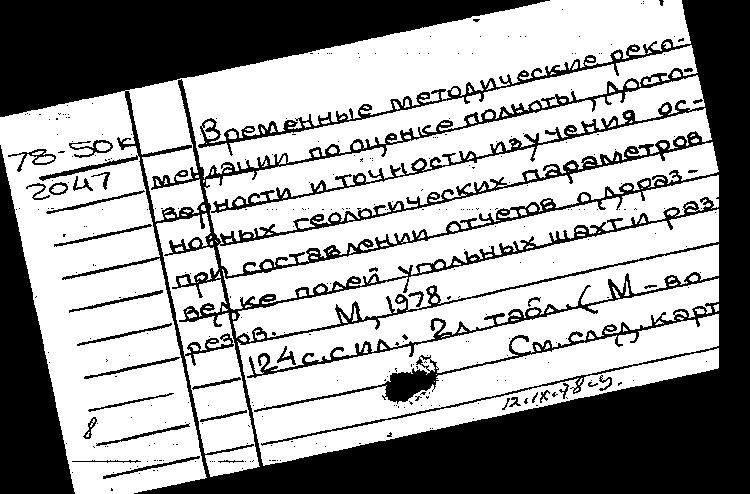 Временные методические реко-
78-50к
мендации по оценке полноты, досто-
2047
верности и точности изучения ос-
новных геологических параметров
при составлении отчетов о дораз-
ведке полей угольных шахт и раз-
резов. М., 1978.
124 с. с ил.; 2 л. табл. (М-во
См. след. карт
8